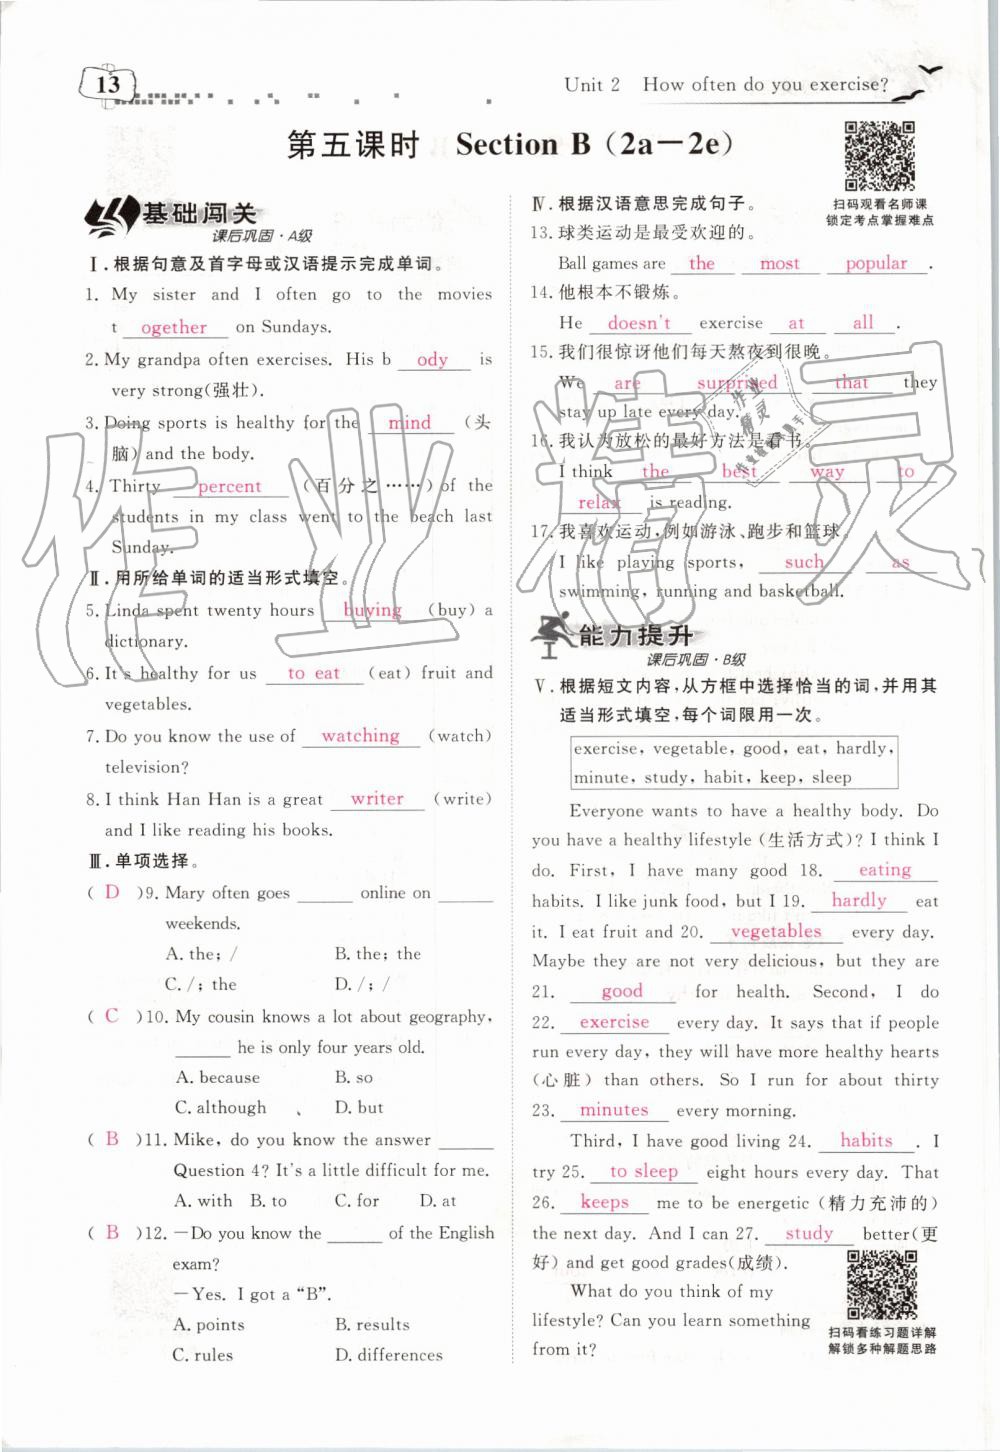 13
Unit 2 How often do you exercise?
第五课时 Section B (2a—2e)
扫码观看名师课
锁定考点掌握难点
基础闯关
课后巩固·A级
Ⅰ.根据句意及首字母或汉语提示完成单词。
1. My sister and I often go to the movies
t ogether on Sundays.
2. My grandpa often exercises. His b ody is
very strong(强壮).
3. Doing sports is healthy for the mind (头
脑) and the body.
4. Thirty percent (百分之……) of the
students in my class went to the beach last
Sunday.
Ⅱ.用所给单词的适当形式填空。
5. Linda spent twenty hours buying (buy) a
dictionary.
6. It's healthy for us to eat (eat) fruit and
vegetables.
7. Do you know the use of watching (watch)
television?
8. I think Han Han is a great writer (write)
and I like reading his books.
Ⅲ.单项选择。
( D )9. Mary often goes ______ online on ______
weekends.
A. the; / B. the; the
C. /; the D. /; /
( C )10. My cousin knows a lot about geography,
______ he is only four years old.
A. because B. so
C. although D. but
( B )11. Mike, do you know the answer ______
Question 4? It's a little difficult for me.
A. with B. to C. for D. at
( B )12. —Do you know the ______ of the English
exam?
—Yes. I got a “B”.
A. points B. results
C. rules D. differences
Ⅳ.根据汉语意思完成句子。
13. 球类运动是最受欢迎的。
Ball games are the most popular .
14. 他根本不锻炼。
He doesn't exercise at all .
15. 我们很惊讶他们每天熬夜到很晚。
We are surprised that they
stay up late every day.
16. 我认为放松的最好方法是看书。
I think the best way to
relax is reading.
17. 我喜欢运动,例如游泳、跑步和篮球。
I like playing sports, such as
swimming, running and basketball.
能力提升
课后巩固·B级
Ⅴ.根据短文内容,从方框中选择恰当的词,并用其
适当形式填空,每个词限用一次。
exercise, vegetable, good, eat, hardly,
minute, study, habit, keep, sleep
Everyone wants to have a healthy body. Do
you have a healthy lifestyle(生活方式)? I think I
do. First, I have many good 18. eating
habits. I like junk food, but I 19. hardly eat
it. I eat fruit and 20. vegetables every day.
Maybe they are not very delicious, but they are
21. good for health. Second, I do
22. exercise every day. It says that if people
run every day, they will have more healthy hearts
(心脏) than others. So I run for about thirty
23. minutes every morning.
Third, I have good living 24. habits . I
try 25. to sleep eight hours every day. That
26. keeps me to be energetic (精力充沛的)
the next day. And I can 27. study better(更
好) and get good grades(成绩).
What do you think of my
lifestyle? Can you learn something
from it?
扫码看练习题详解
解锁多种解题思路
作业精灵